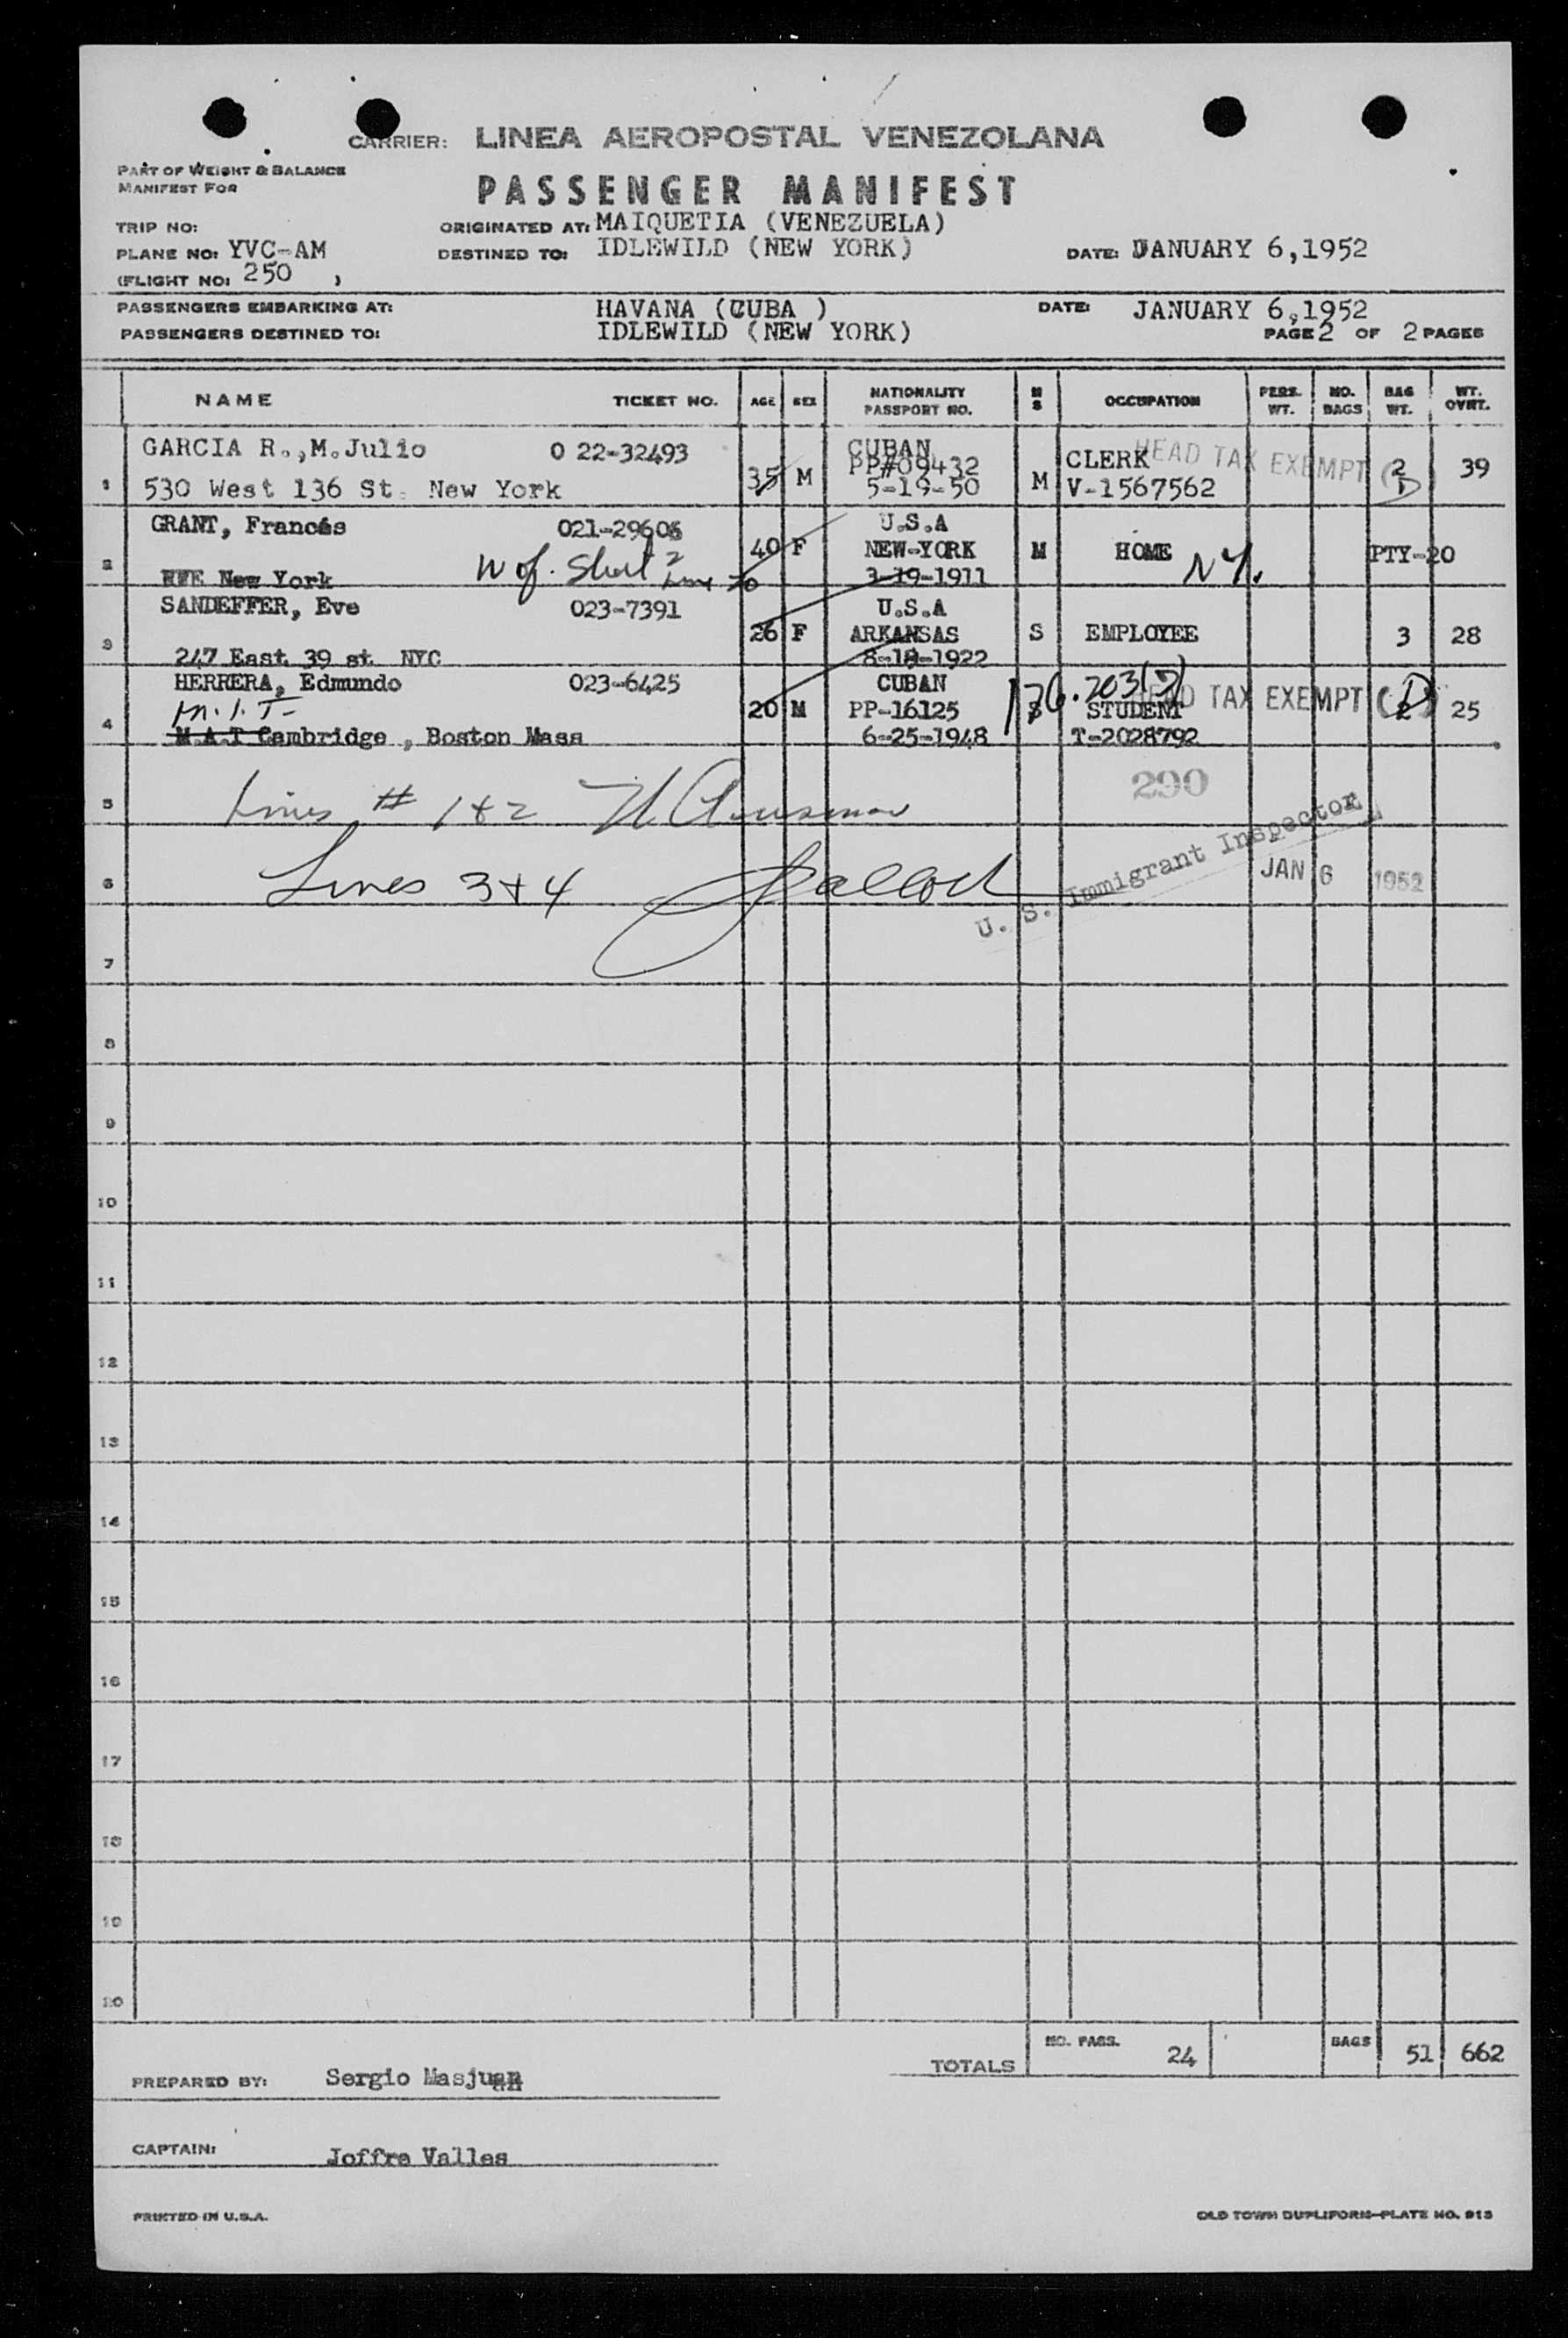 CARRIER: LINEA AEROPOSTAL VENEZOLANA
PART OF WEIGHT & BALANCE
MANIFEST FOR
PASSENGER MANIFEST
TRIP NO:
ORIGINATED AT: MAIQUETIA (VENEZUELA)
PLANE NO: YVC-AM
DESTINED TO: IDLEWILD (NEW YORK)
DATE: JANUARY 6,1952
(FLIGHT NO: 250 )
PASSENGERS EMBARKING AT: HAVANA (CUBA ) DATE: JANUARY 6,1952
PASSENGERS DESTINED TO: IDLEWILD (NEW YORK) PAGE 2 OF 2 PAGES
NAME TICKET NO. AGE SEX NATIONALITY PASSPORT NO. M S OCCUPATION PERS. WT. NO. BAGS BAG WT. WT. OVRT.
1 GARCIA R.,M.Julio 0 22-32493 35 M CUBAN PP#09432 5-19-50 M CLERK V-1567562 HEAD TAX EXEMPT (D) 2 39
530 West 136 St. New York
2 GRANT, Francés 021-29606 40 F U.S.A NEW-YORK 3-19-1911 M HOME N.Y. PTY-20
New York W of. Sheet 2 Line 20
3 SANDEFFER, Eve 023-7391 26 F U.S.A ARKANSAS 8-18-1922 S EMPLOYEE 3 28
247 East 39 st NYC
4 HERRERA, Edmundo 023-6425 20 M CUBAN PP-16125 6-25-1948 S 176.203(7) STUDENT T-2028792 HEAD TAX EXEMPT (D) 2 25
M.I.T-
M.A.T Cambridge , Boston Mass
290
5 Lines # 1 & 2
6 Lines 3 & 4
U. S. Immigrant Inspector
JAN 6 1952
7
8
9
10
11
12
13
14
15
16
17
18
19
20
TOTALS NO. PASS. 24 BAGS 51 662
PREPARED BY: Sergio Masjuan
CAPTAIN: Joffre Valles
PRINTED IN U.S.A.
OLD TOWN DUPLIFORM-PLATE NO. 913